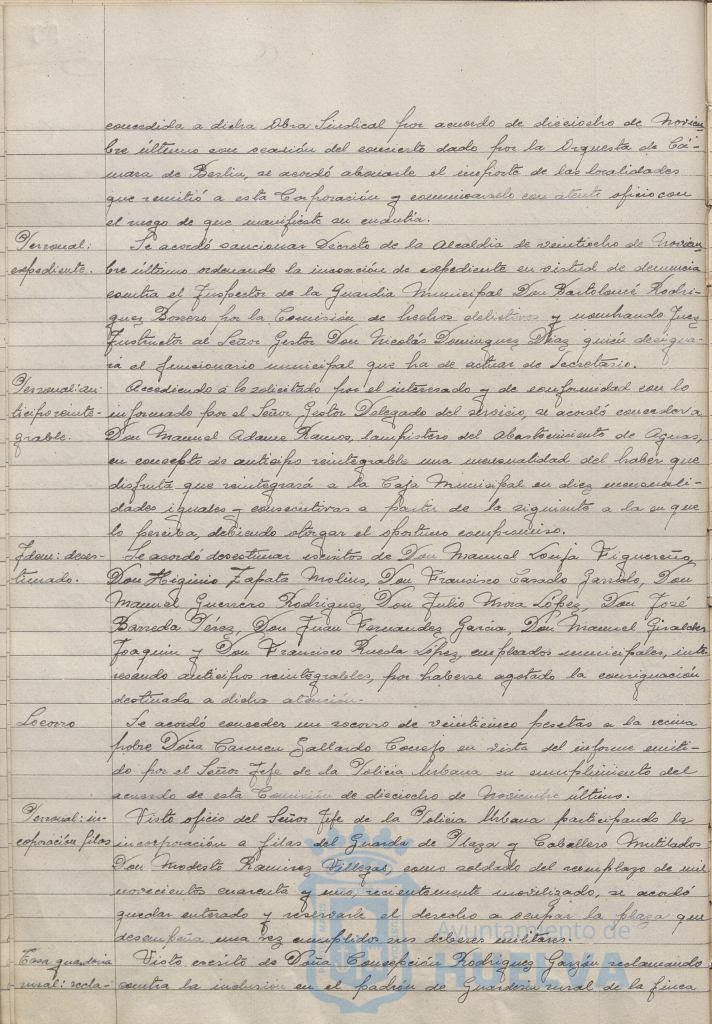 concedida a dicha Obra Sindical por acuerdo de dieciocho de Noviem-
bre último con ocasión del concierto dado por la Orquesta de Cá-
mara de Berlin, se acordó abonarle el importe de las localidades
que remitió a esta Corporación y comunicarselo con atento oficio con
el ruego de que manifieste su cuantía.
Personal: expediente.
Se acordó sancionar Decreto de la Alcaldia de veintiocho de Noviem-
bre último ordenando la incoación de expediente en virtud de denuncia
contra el Inspector de la Guardia Municipal Don Bartolomé Rodri-
guez Borrero por la Comisión de hechos delictivos y nombrando Juez
Instructor al Señor Gestor Don Nicolás Dominguez Diaz quien designa-
rá el funcionario municipal que ha de actuar de Secretario.
Personal: an-
ticipo reinte-
grable.
Accediendo a lo solicitado por el interesado y de conformidad con lo
informado por el Señor Gestor Delegado del servicio, se acordó conceder a
Don Manuel Adame Ramos, lampistero del Abastecimiento de Aguas,
en concepto de anticipo reintegrable una mensualidad del haber que
disfruta que reintegrará a la Caja Municipal en diez mensuali-
dades iguales y consecutivas a partir de la siguiente a la en que
lo perciba, debiendo otorgar el oportuno compromiso.
Idem: deses-
timado.
Se acordó desestimar escritos de Don Manuel Figuereño,
Don Higinio Zapata Molins, Don Francisco Casado Garrido, Don
Manuel Guerrero Rodriguez, Don Julio Mora López, Don José
Barreda Pérez, Don Juan Fernandez Garcia, Don Manuel Giraldez
Joaquin y Don Francisco Rueda López, empleados municipales, inte-
resando anticipos reintegrables, por haberse agotado la consignación
destinada a dicha atención.
Socorro
Se acordó conceder un socorro de veinticinco pesetas a la vecina
pobre Doña Carmen Gallardo Conejo en vista del informe emiti-
do por el Señor Jefe de la Policia Urbana en cumplimiento del
acuerdo de esta Comisión de dieciocho de Noviembre último.
Personal: in-
coporación filas
Visto oficio del Señor Jefe de la Policia Urbana participando la
incorporación a filas del Guarda de Plaza y Caballero Mutilado
Don Modesto Ramirez Villegas, como soldado del reemplazo de mil
novecientos cuarenta y uno, recientemente movilizado, se acordó
quedar enterado y reservarle el derecho a ocupar la plaza que
desempeña una vez cumplidos sus deberes militares.
Tasa guarderia
rural: recla-
Visto escrito de Doña Concepción Rodriguez Garzón reclamando
contra la inclusión en el padrón de Guarderia rural de la finca
Ayuntamiento de
HUELVA